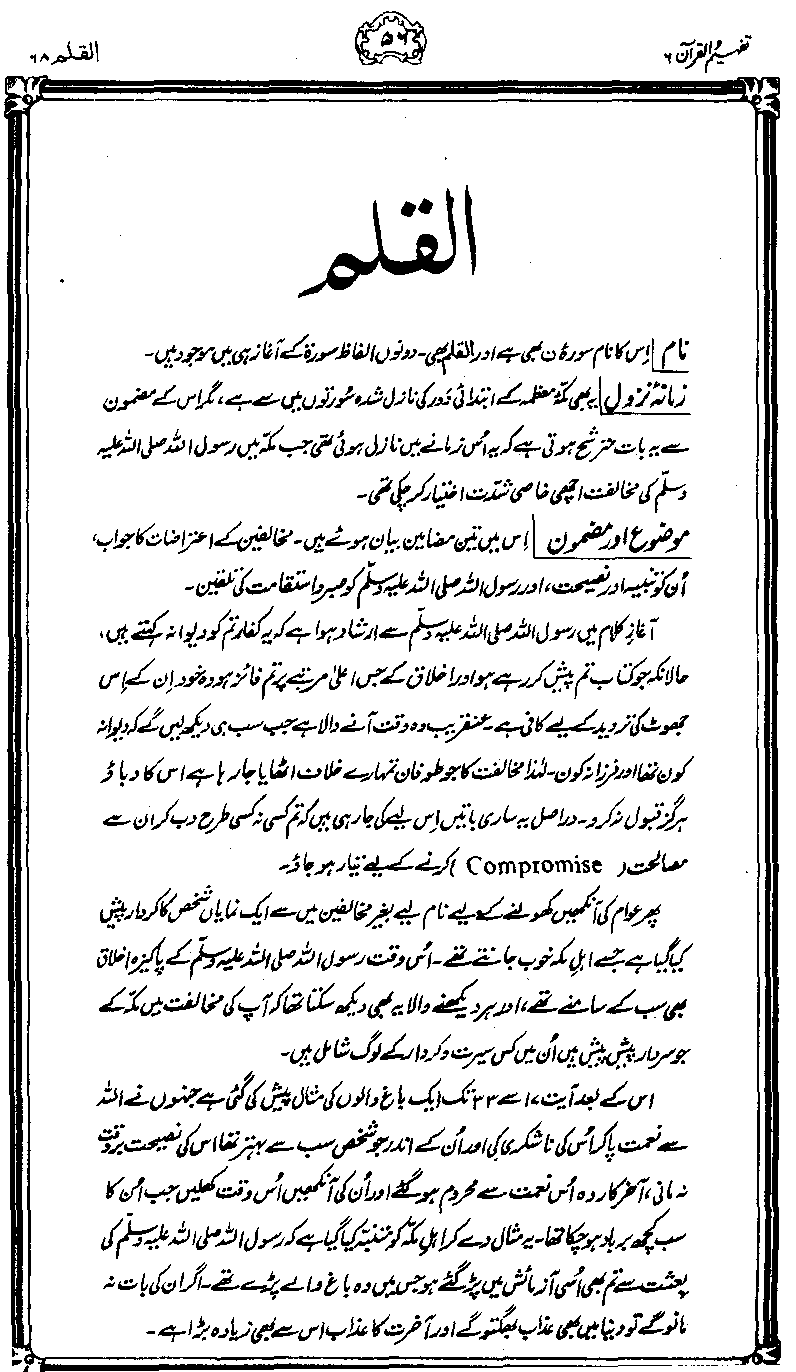 تفہیم القرآن ۶
۵۶
القلم ۶۸
القلم
نام اِس کا نام سورۂ ن بھی ہے اور القلم بھی۔ دونوں الفاظ سورۃ کے آغاز ہی میں موجود ہیں۔
زمانۂ نزول یہ بھی مکۂ معظمہ کے ابتدائی دَور کی نازل شدہ سُورتوں میں سے ہے، مگر اس کے مضمون
سے یہ بات مترشح ہوتی ہے کہ یہ اُس زمانے میں نازل ہوئی تھی جب مکّہ میں رسول اللہ صلی اللہ علیہ
وسلّم کی مخالفت اچھی خاصی شدّت اختیار کر چکی تھی۔
موضوع اور مضمون اِس میں تین مضامین بیان ہوئے ہیں۔ مخالفین کے اعتراضات کا جواب،
اُن کو تنبیہ اور نصیحت، اور رسول اللہ صلی اللہ علیہ وسلّم کو صبر و استقامت کی تلقین۔
آغازِ کلام میں رسول اللہ صلی اللہ علیہ وسلّم سے ارشاد ہوا ہے کہ یہ کفار تم کو دیوانہ کہتے ہیں،
حالانکہ جو کتاب تم پیش کر رہے ہو اور اخلاق کے جس اعلیٰ مرتبے پر تم فائز ہو وہ خود اِن کے اِس
جھوٹ کی تردید کے لیے کافی ہے۔ عنقریب وہ وقت آنے والا ہے جب سب ہی دیکھ لیں گے کہ دیوانہ
کون تھا اور فرزانہ کون۔ لہٰذا مخالفت کا جو طوفان تمہارے خلاف اٹھایا جا رہا ہے اس کا دباؤ
ہرگز قبول نہ کرو۔ دراصل یہ ساری باتیں اِس لیے کی جا رہی ہیں کہ تم کسی نہ کسی طرح دب کر ان سے
مصالحت (Compromise) کرنے کے لیے تیار ہو جاؤ۔
پھر عوام کی آنکھیں کھولنے کے لیے نام لیے بغیر مخالفین میں سے ایک نمایاں شخص کا کردار پیش
کیا گیا ہے جسے اہلِ مکہ خوب جانتے تھے۔ اُس وقت رسول اللہ صلی اللہ علیہ وسلّم کے پاکیزہ اخلاق
بھی سب کے سامنے تھے، اور ہر دیکھنے والا یہ بھی دیکھ سکتا تھا کہ آپ کی مخالفت میں مکّہ کے
جو سردار پیش پیش ہیں اُن میں کس سیرت و کردار کے لوگ شامل ہیں۔
اس کے بعد آیت ۱۷ سے ۳۳ تک ایک باغ والوں کی مثال پیش کی گئی ہے جنہوں نے اللہ
سے نعمت پا کر اُس کی ناشکری کی اور اُن کے اندر جو شخص سب سے بہتر تھا اس کی نصیحت بروقت
نہ مانی، آخر کار وہ اُس نعمت سے محروم ہو گئے اور اُن کی آنکھیں اُس وقت کھلیں جب اُن کا
سب کچھ برباد ہو چکا تھا۔ یہ مثال دے کر اہلِ مکّہ کو متنبّہ کیا گیا ہے کہ رسول اللہ صلی اللہ علیہ وسلّم کی
بعثت سے تم بھی اُسی آزمائش میں پڑ گئے ہو جس میں وہ باغ والے پڑے تھے۔ اگر ان کی بات نہ
مانو گے تو دنیا میں بھی عذاب بھگتو گے اور آخرت کا عذاب اس سے بھی زیادہ بڑا ہے۔